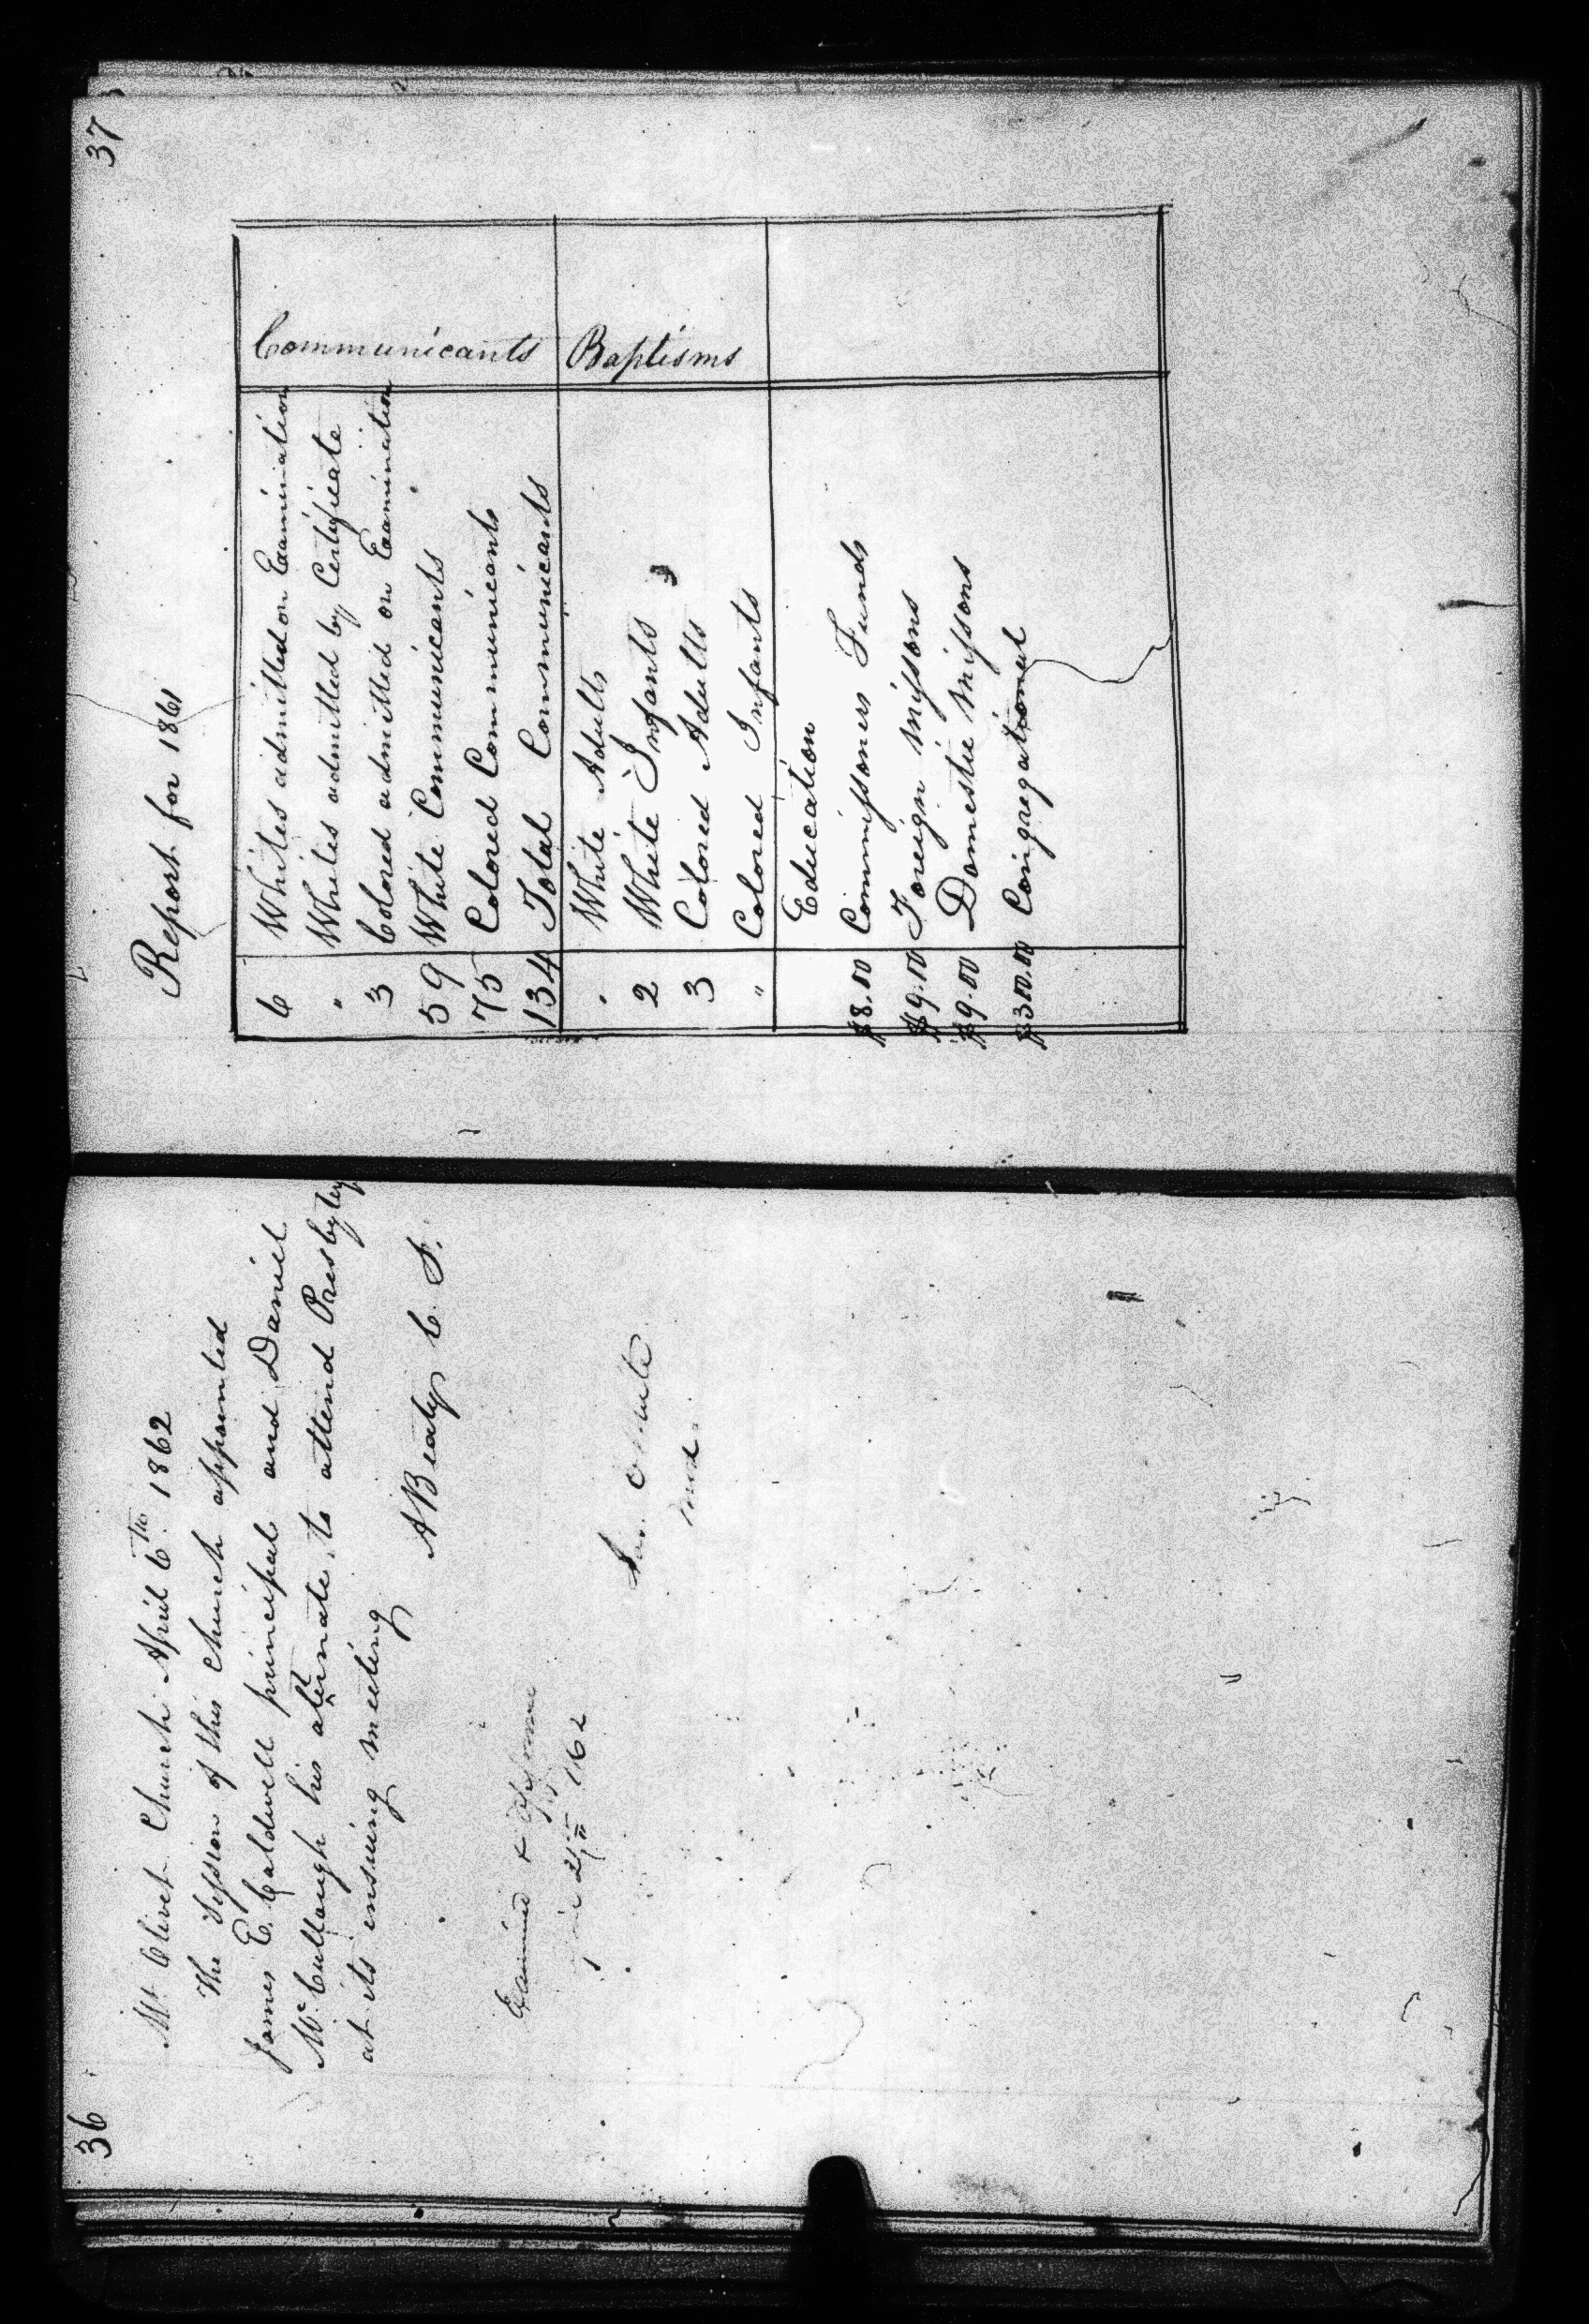 36
Mt. Olivet Church April 6th. 1862
The Session of this Church appointed
James E. Caldwell principal and Daniel
McCullough his alternate, to attend Presbytery
at its ensuing meeting
A Beaty C. S.
Examined &
1862
37
Report for 1861
6 Whites admitted on Examination Communicants
" Whites admitted by Certificate
3 Colored admitted on Examination
59 White Communicants
75 Colored Communicants
134 Total Communicants
" White Adults Baptisms
2 White Infants
3 Colored Adults
" Colored Infants
Education
$8.00 Commissoners Funds
$9.10 Foreign Missons
$9.00 Domestic Missons
$300.00 Congregational